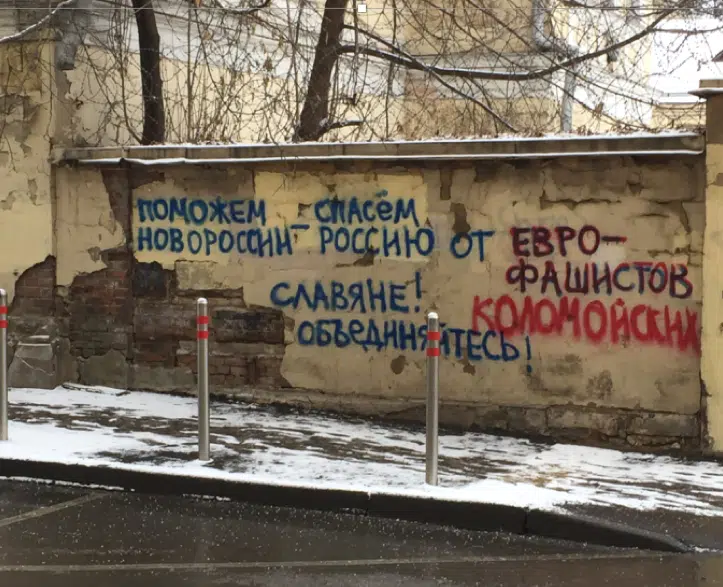 ПОМОЖЕМ – СПАСЁМ
НОВОРОССИИ – РОССИЮ ОТ ЕВРО–
ФАШИСТОВ
КОЛОМОЙСКИХ
СЛАВЯНЕ!
ОБЪЕДИНЯЙТЕСЬ!